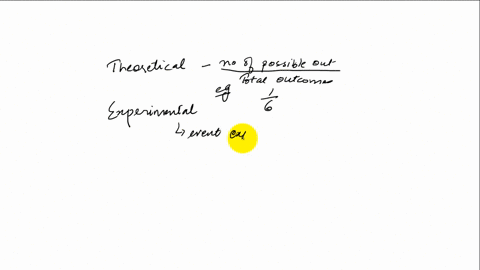 Theoretical - no of possible out
Total outcomes
eg 1/6
Experimental
↳ event